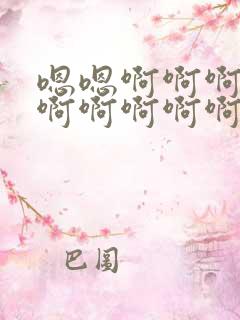 嗯嗯啊啊啊
啊啊啊啊啊
巴图